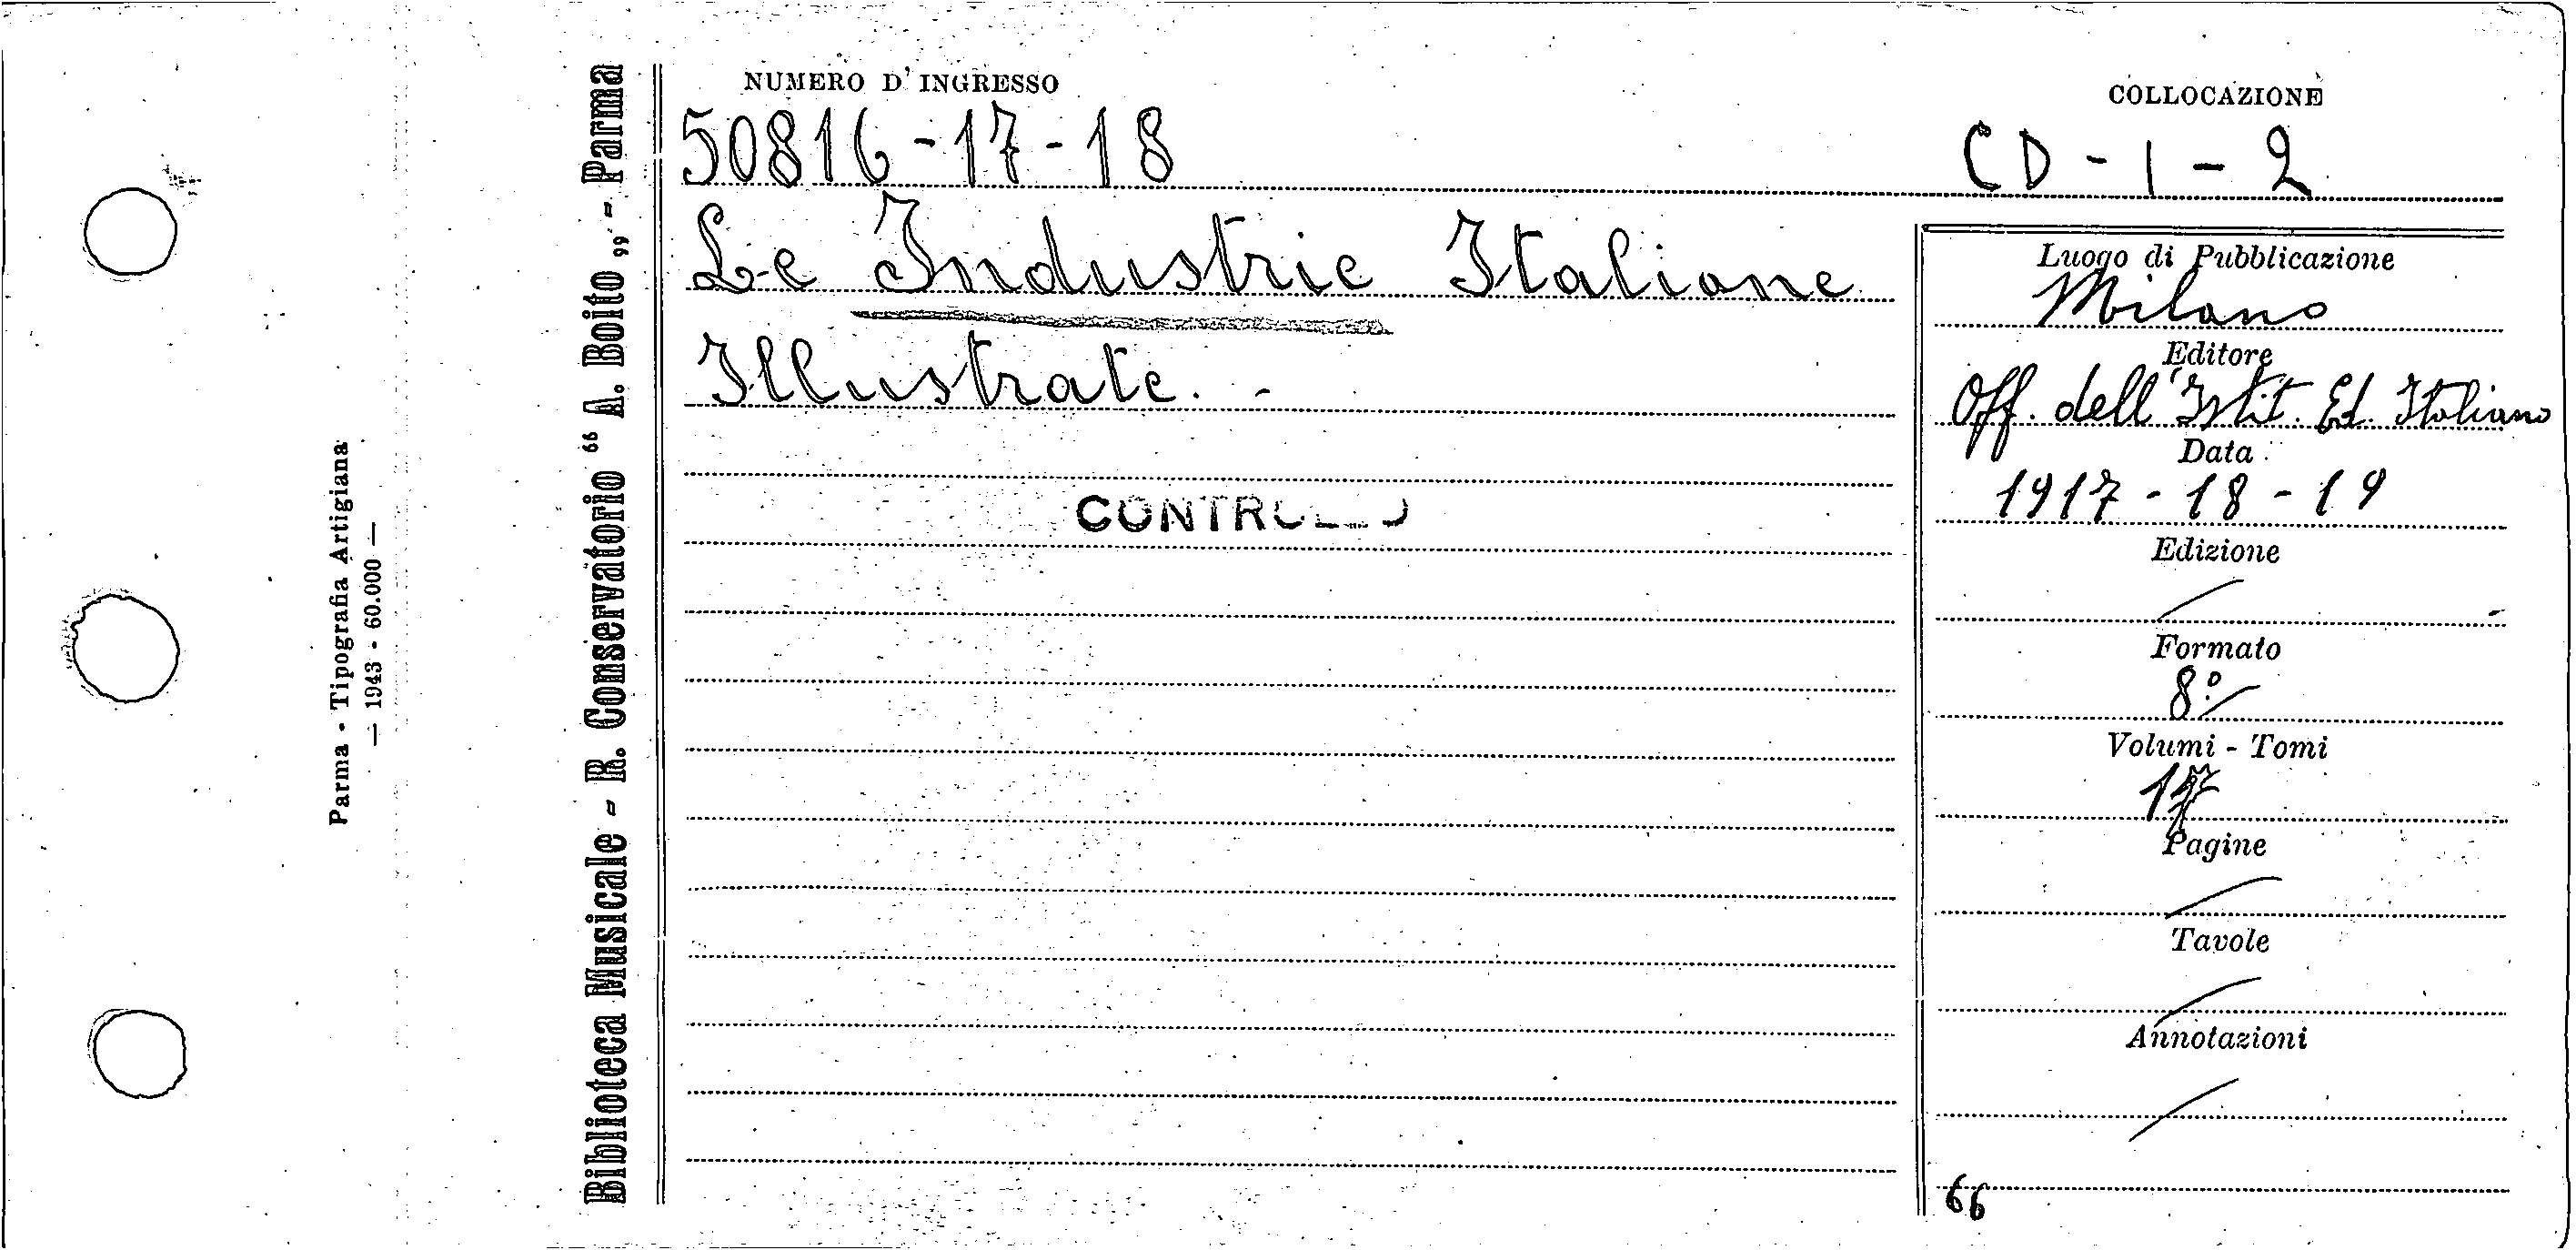 NUMERO D'INGRESSO
50816-17-18
COLLOCAZIONE
CD-1-2
Le Industrie Italiane
Illustrate. -
Luogo di Pubblicazione
Milano
Editore
Off. dell'Istit. Ed. Italiano
Data
1917-18-19
Edizione
Formato
8º
Volumi - Tomi
Pagine
Tavole
Annotazioni
66
Biblioteca Musicale - R. Conservatorio "A. Boito" - Parma
Parma - Tipografia Artigiana
— 1943 - 60.000 —